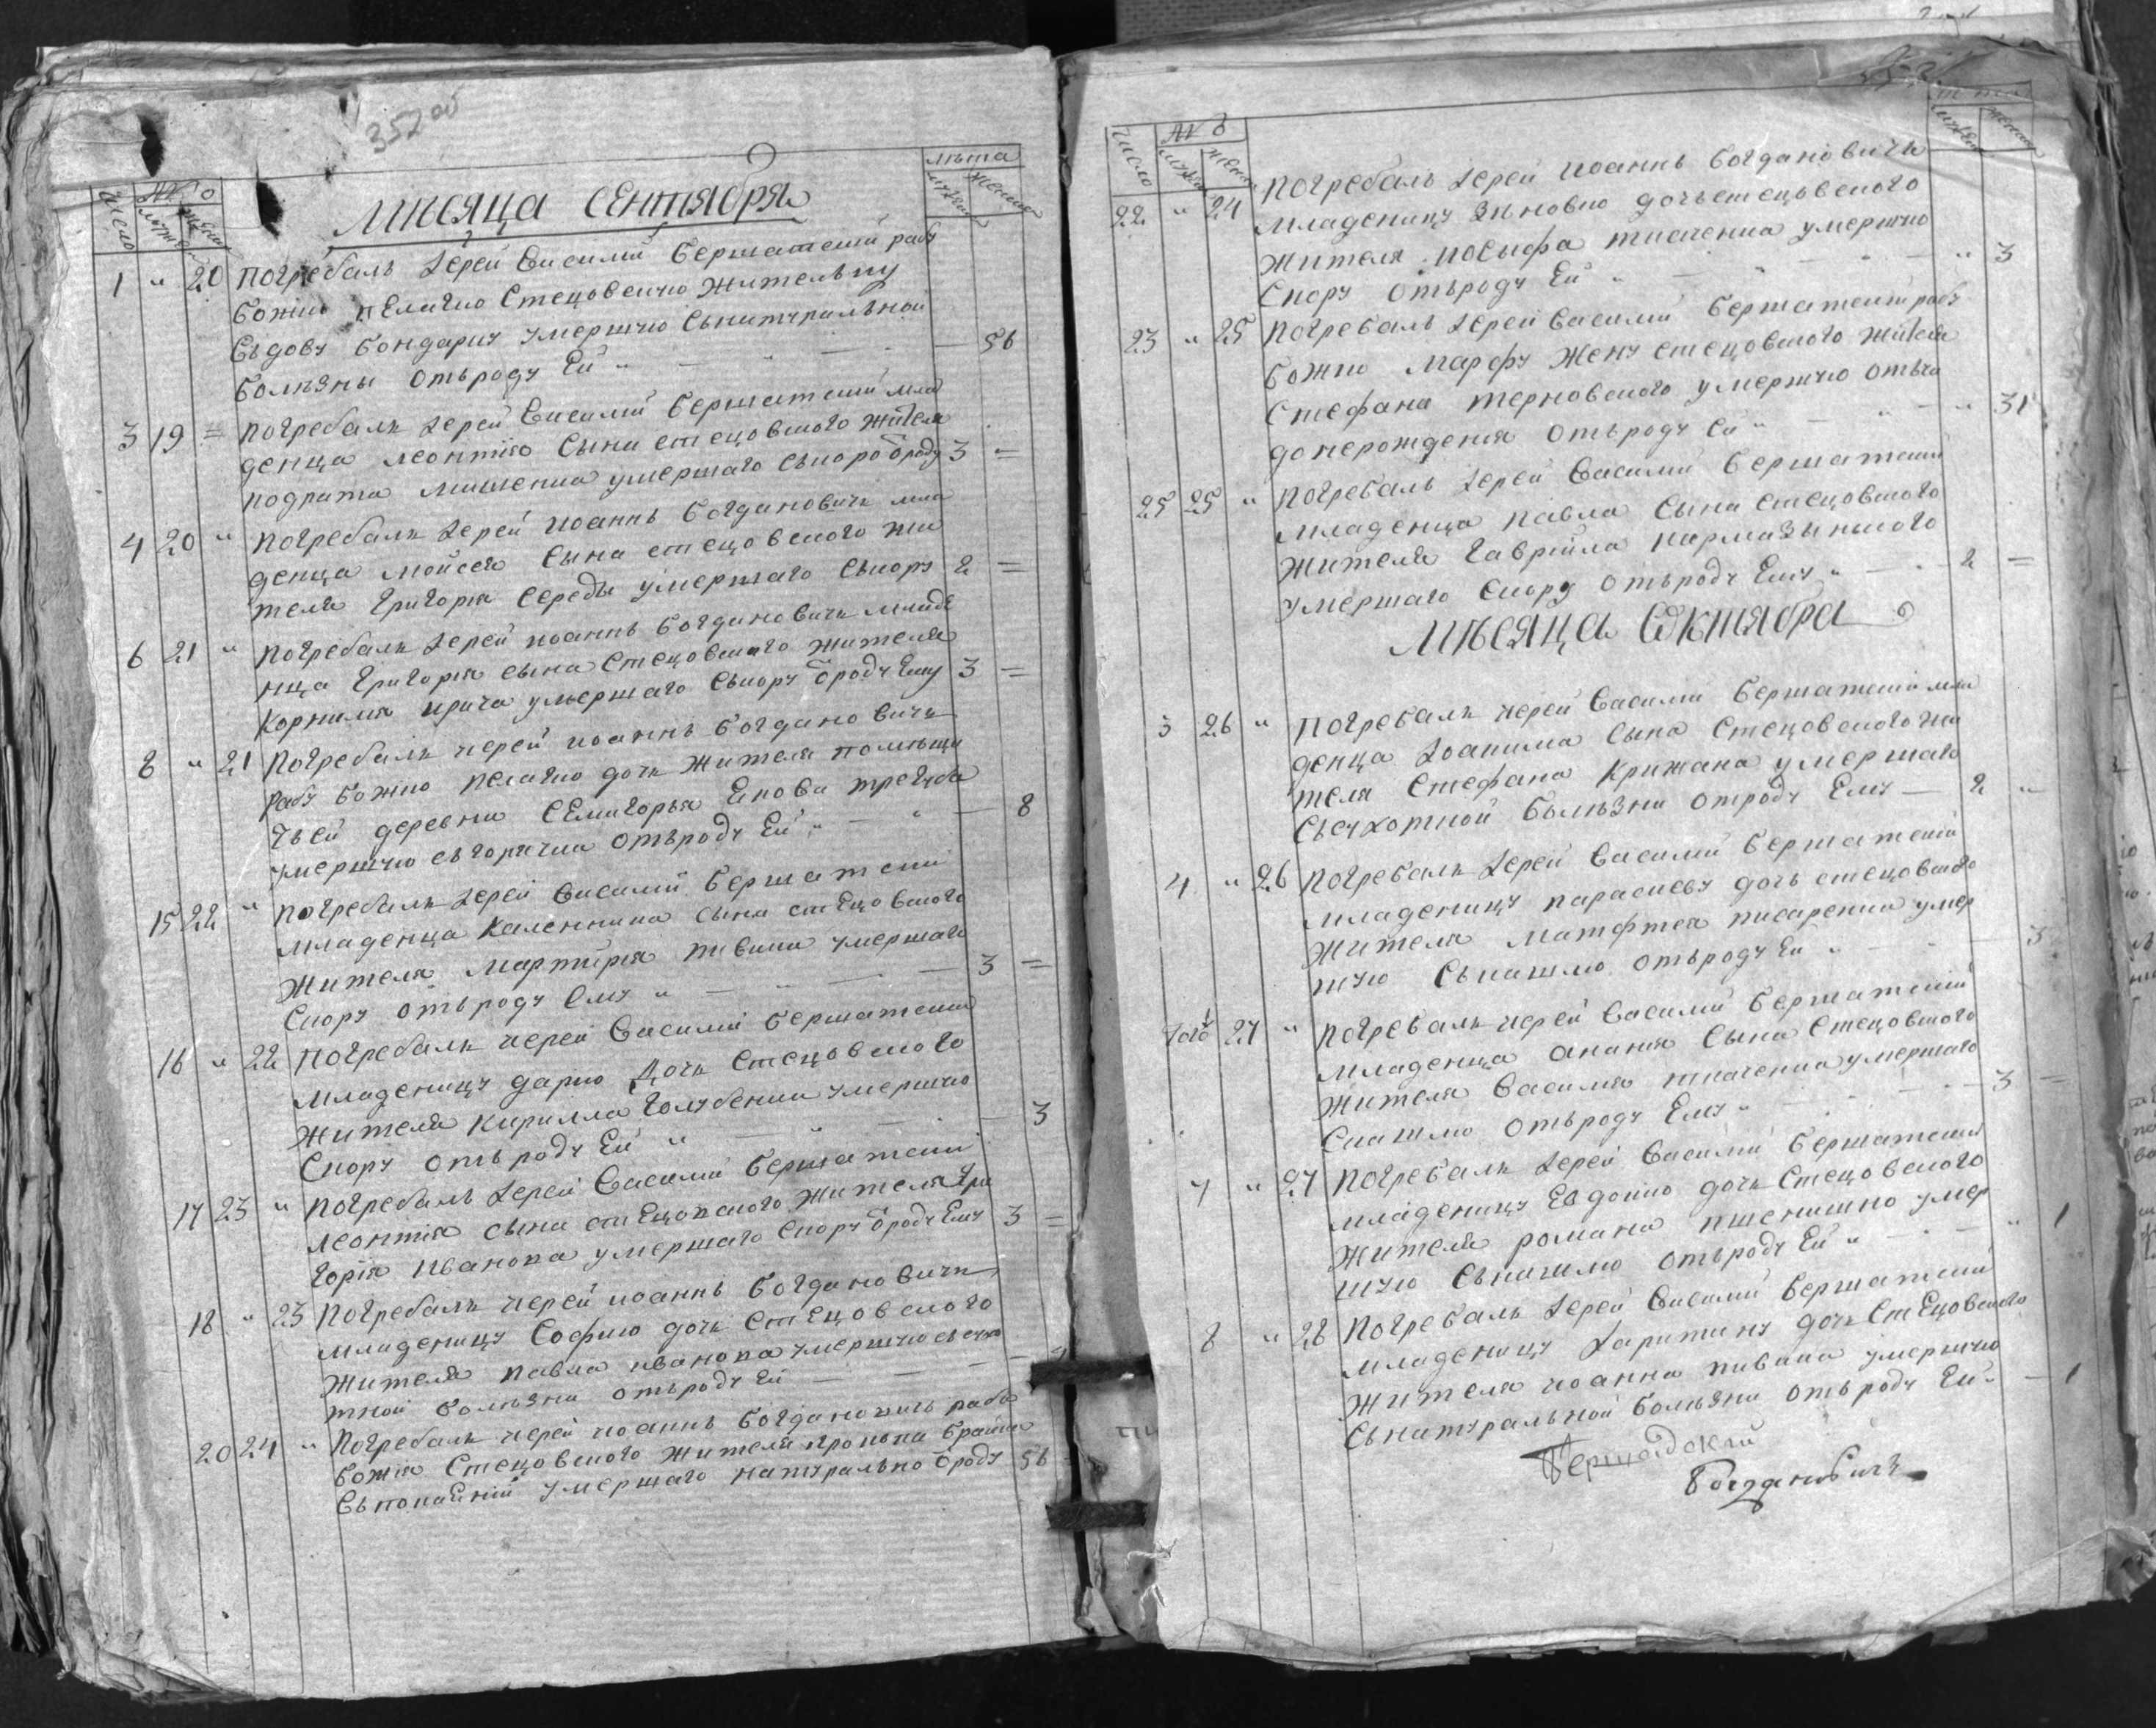 352 об
Число № лѣта
мужск женск мужск женск
мѣсяца сентября
1 " 20 погребалъ Іерей Василий Бершатский рабу
божию пелагию Стецовскую жительку
Въдову Бондарку умершую Сънатуральной
болѣзны отъроду Ей " — — 56
3 19 = погребалъ Іерей Василий Бершатский мла
денца леонтія Сына стецовского жителя
кодрата умершаго Скору ѿроду 3 =
4 20 " погребалъ Іерей иоаннъ Богдановичъ мла
денца мойсея Сына стецовского жи
теля Григорія Середы умершаго Скору 2 =
6 21 " погребалъ Іерей иоаннъ Богдановичъ младе
нца Григорія сына Стецовского жителя
Корнилія умершаго Скору ѿроду Ему 3 =
8 " 21 погребалъ иерей иоаннъ Богдановичъ
рабу божию пелагию дочь жителя помѣщи
чьей деревни Семигорья Якова
умершую отъроду Ей " — — 8
15 22 " погребалъ Іерей Василий Бершатский
младенца Каленника сына стецовского
жителя Мартирія пивника умершаго
Скору отъроду Ему " — — 3 =
16 " 22 погребалъ иерей Василий Бершатский
младеницу дарию дочь стецовского
жителя Кирилла Голубенка умершую
Скору отъроду Ей " — — 3
17 23 " погребалъ Іерей Василий Бершатский
леонтія сына стецовского жителя Гри
горія Иванока умершаго Скору ѿроду Ему 3 =
18 " 23 погребалъ иерей иоаннъ Богдановичъ
младеницу Софию дочь стецовского
жителя павла иванока умершую съсухо
тной болѣзни отъроду Ей — —
20 24 " погребалъ иерей иоаннъ Богдановичъ раба
божія Стецовского жителя
умершаго натурально ѿроду 56
Число № лѣта
мужск женск мужск женск
22 " 24 погребалъ Іерей иоаннъ Богдановичъ
младеницу Зѣновию дочь стецовского
жителя иосыфа ткаченка умершую
Скору отъроду Ей " — — " 3
23 " 25 погребалъ Іерей Василий Бершатский рабу
божию Марфу Жену стецовского жителя
Стефана терновского умершую отъча
донерождения отъроду Ей " — — " 31
25 25 " погребалъ Іерей Василий Бершатский
младенца павла Сына стецовского
жителя Гаврійла кармазынского
умершаго Скору отъроду Ему " — 2 =
мѣсяца Ѡктября
3 26 " погребалъ иерей Василий Бершатский мла
денца Іоакима Сына Стецовского жи
теля Стефана Крижана умершаго
Съсухотной болѣзни отроду Ему — 2 "
4 " 26 погребалъ Іерей Василий Бершатский
младеницу параскеву дочь стецовского
жителя Матфтея писаренка умер
шую Скашлю отъроду Ей " — — 3
Того 27 " погребалъ иерей Василий Бершатский
младенца анания Сына Стецовского
жителя Василия ткаченка умершаго
Скашлю отъроду Ему " — — 3 =
7 " 27 погребалъ Іерей Василий Бершатский
младеницу Евдокию дочь Стецовского
жителя романа пшенишно умер
шую Съкашлю отъроду Ей " — " 1
8 " 28 погребалъ Іерей Василий Бершатский
младеницу Харитину дочь Стецовского
жителя иоанна пивника умершую
Сънатуральной болѣзни отъроду Ей " — 1
Бершадский
Богдановичъ